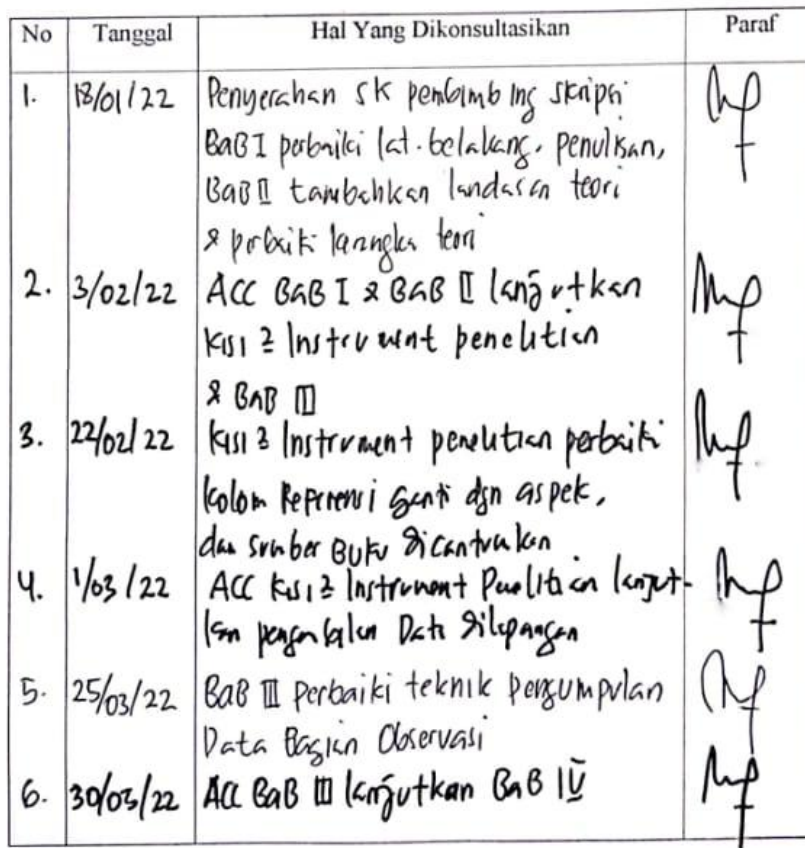 No Tanggal Hal Yang Dikonsultasikan Paraf
1. 18/01/22 Penyerahan SK pembimbing skripsi
BaB I perbaiki lat. belakang, penulisan,
BaB II tambahkan landasan teori
& perbaiki kerangka teori
2. 3/02/22 ACC BaB I & BaB II lanjutkan
Kisi2 Instrument penelitian
& BaB III
3. 22/02/22 Kisi2 Instrument penelitian perbaiki
Kolom Referensi ganti dgn aspek,
dan sumber Buku dicantumkan
4. 1/03/22 ACC Kisi2 Instrument Penelitian lanjut-
kan pengambilan Data dilapangan
5. 25/03/22 BaB III perbaiki teknik pengumpulan
Data Bagian Observasi
6. 30/03/22 ACC BaB III lanjutkan BaB IV